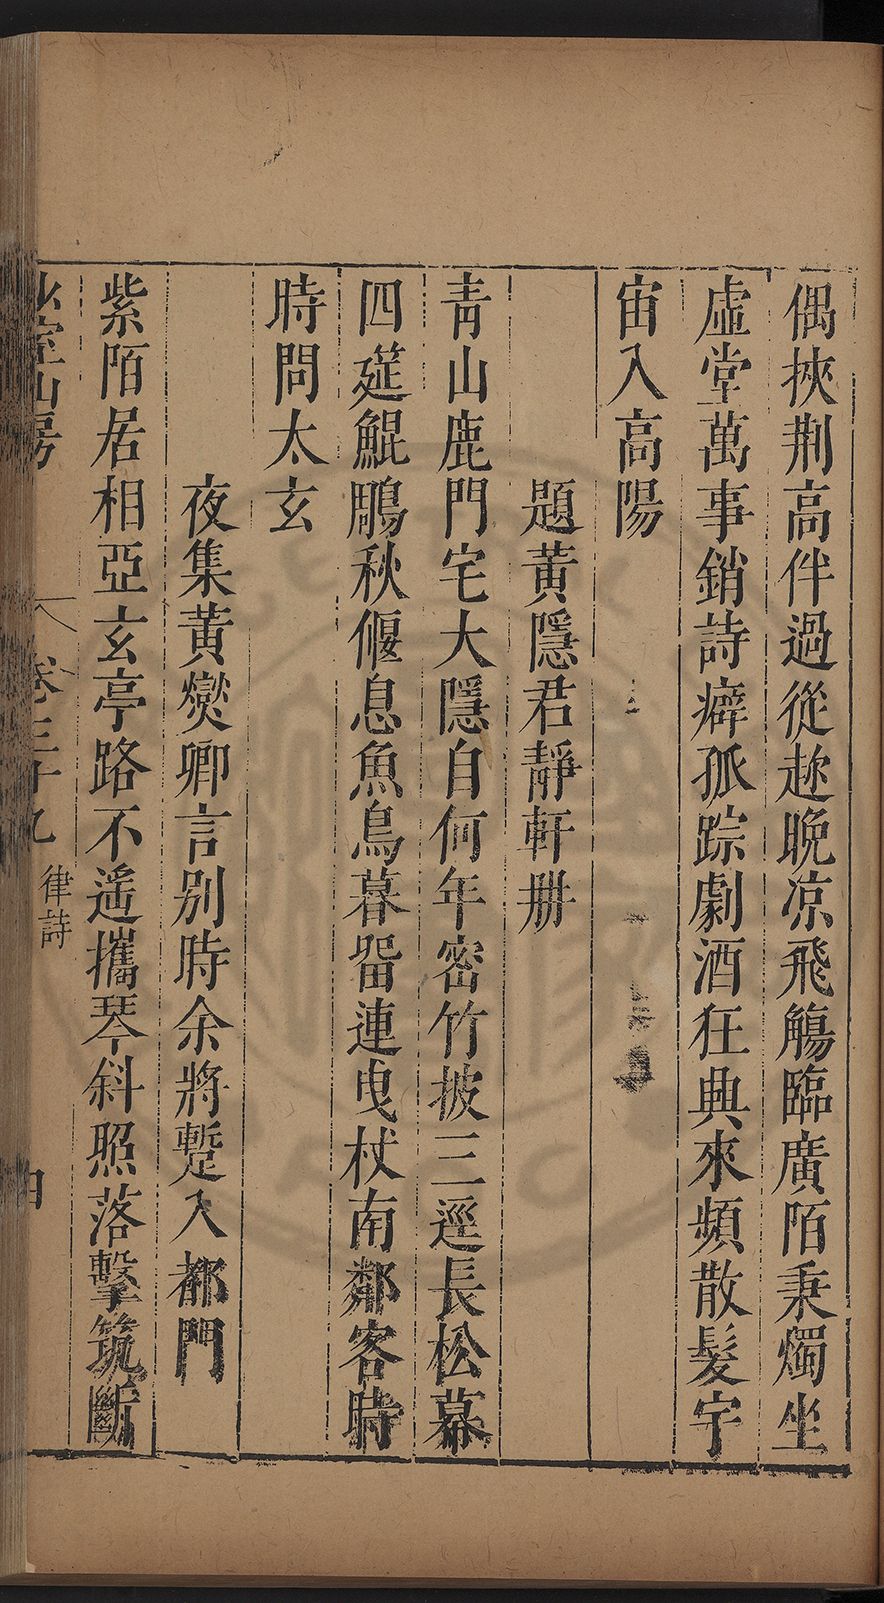 偶挾荆高伴過從趂晚凉飛觴臨廣陌秉燭坐
虛堂萬事銷詩癖孤踪劇酒狂典來頻散髮宇
宙入高陽
題黄隱君靜軒册
青山鹿門宅大隱自何年密竹披三逕長松幕
四筵鯤鵰秋偃息魚鳥暮畱連曳杖南鄰客時
時問太玄
夜集黄爕卿言别時余將蹔入都門
紫陌居相亞玄亭路不遙攜琴斜照落擊筑斷
室山房 卷三十九 律詩